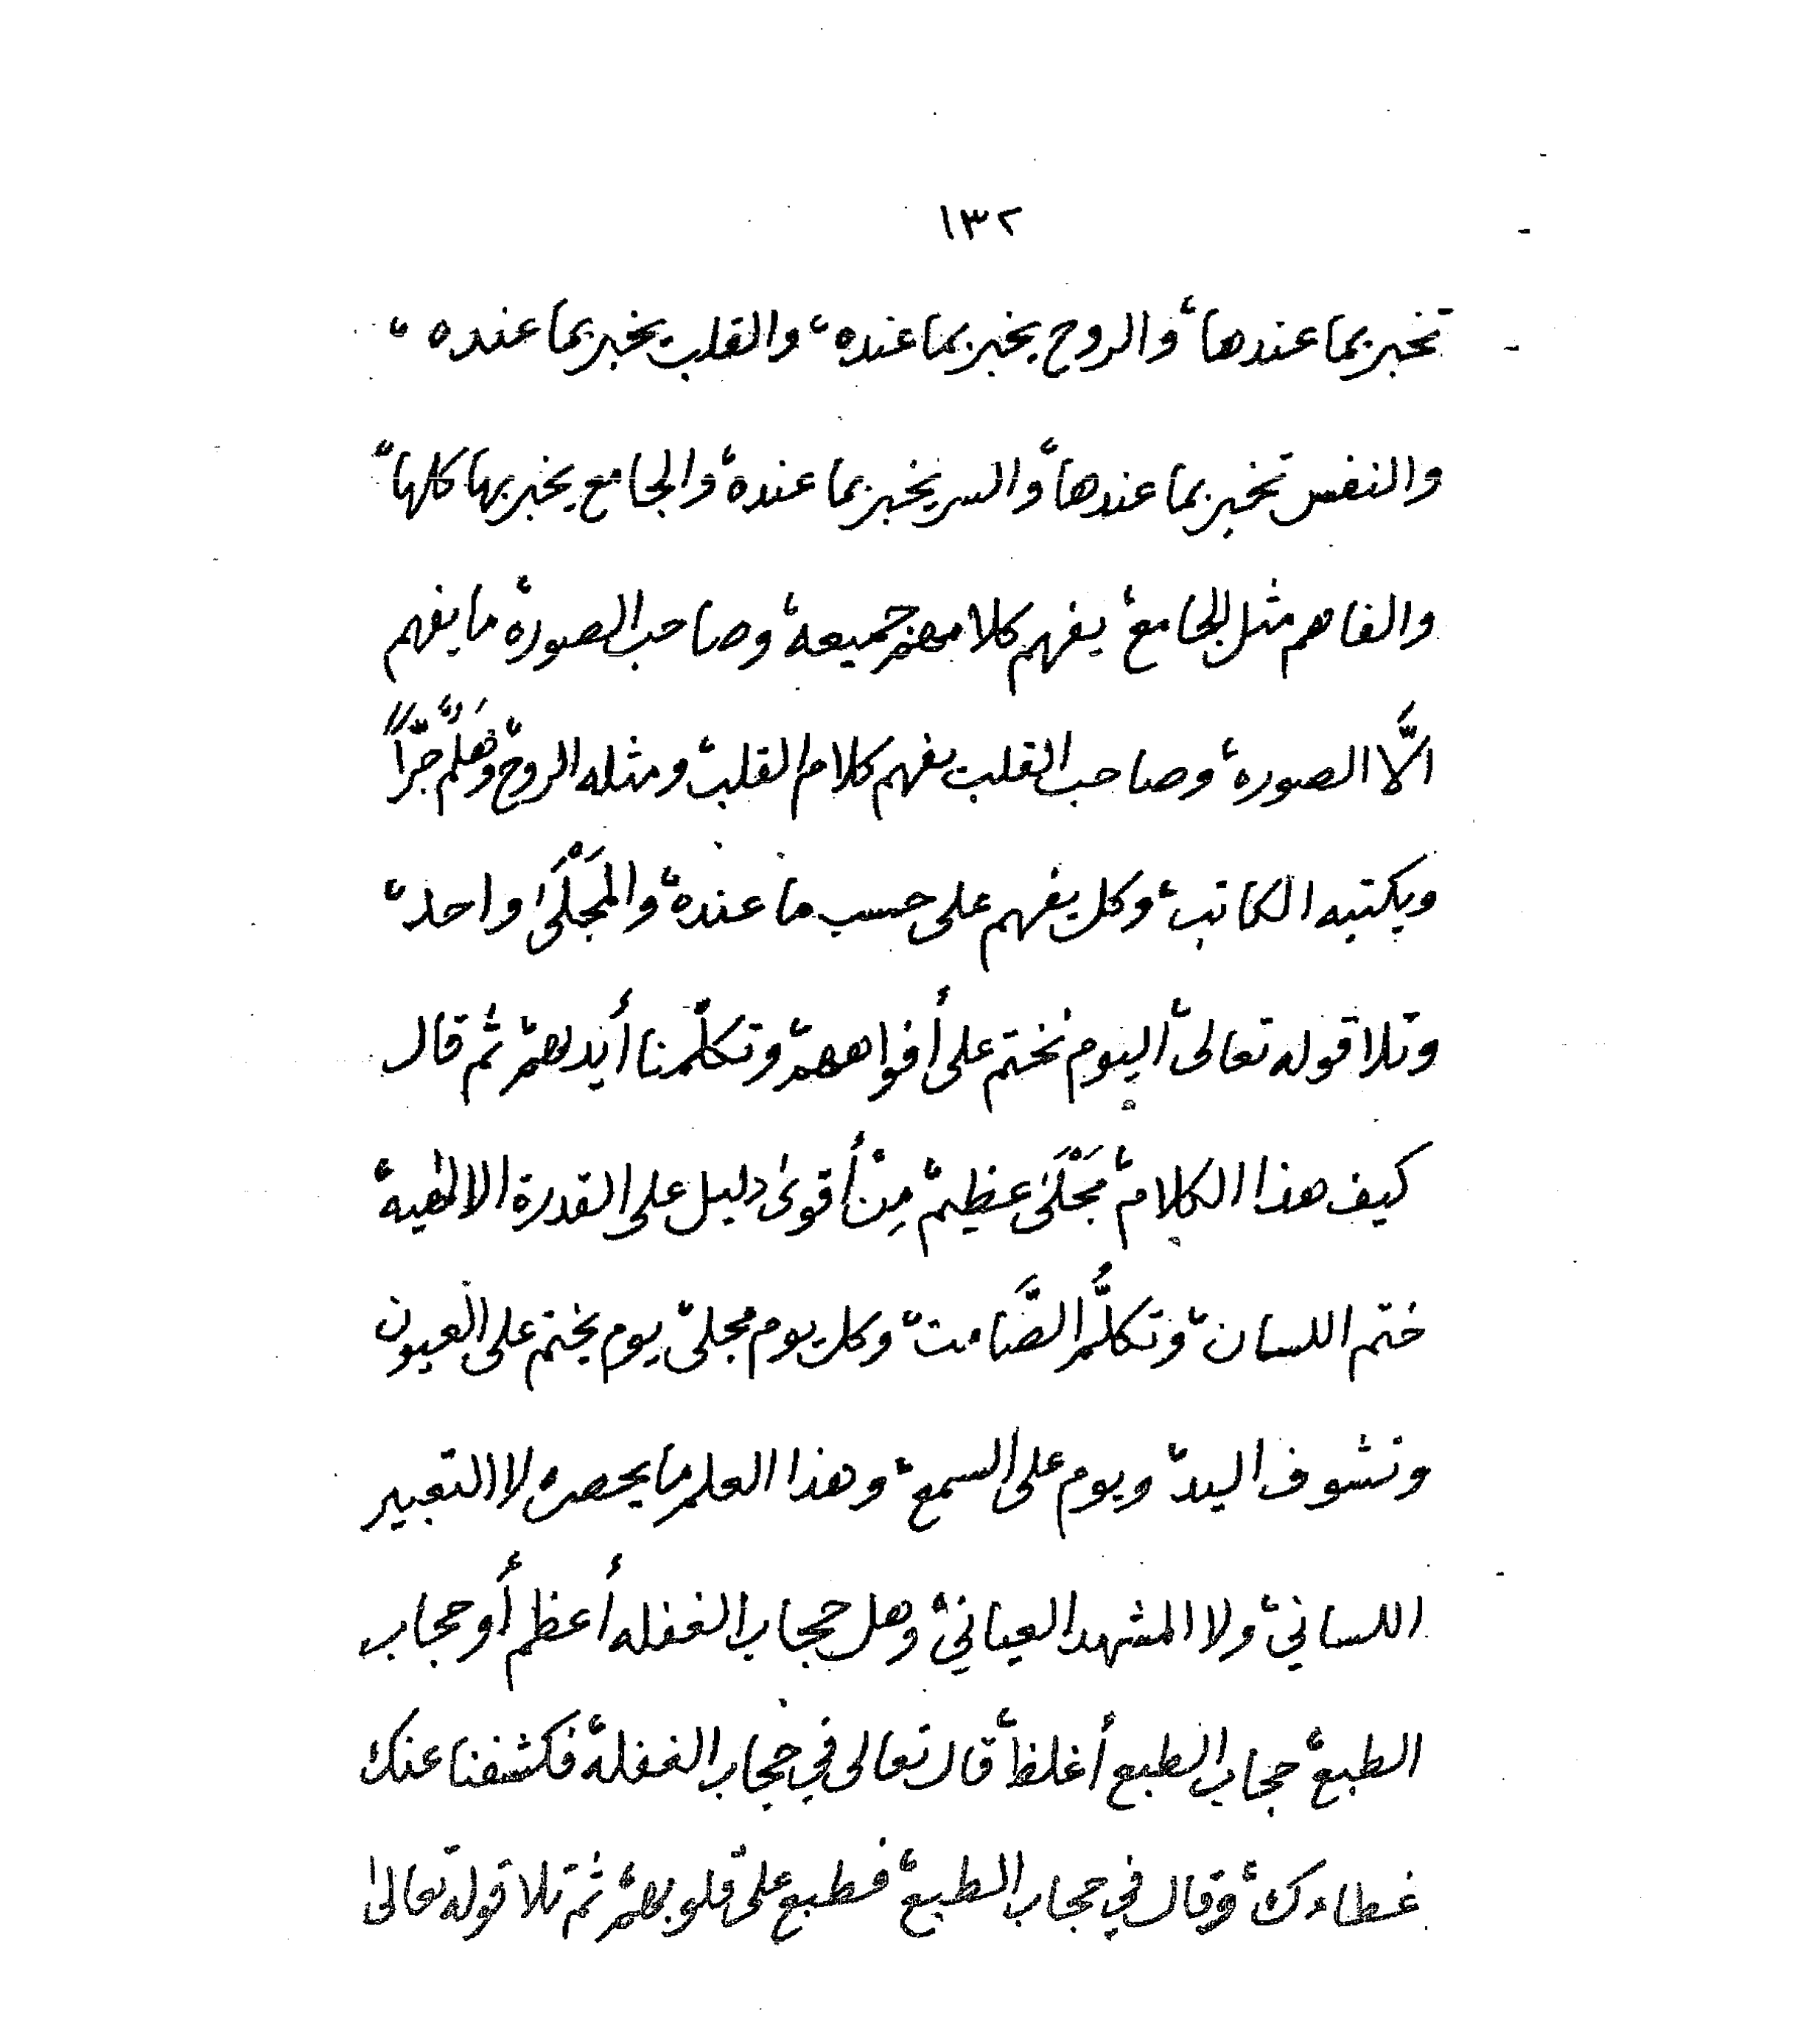 ١٣٢
تخبر بما عندها، والروح يخبر بما عنده، والقلب يخبر بما عنده،
والنفس تخبر بما عندها، والسر يخبر بما عنده، والجامع يخبر بها كلها،
والفاهم مثل الجامع، يفهم كلامهم جميعه، وصاحب الصورة ما يفهم
الَّا الصورة، وصاحب القلب يفهم كلام القلب، ومثله الروح، وهَلُمَّ جرّاً
ويكتبه الكاتب، وكل يفهم على حسب ما عنده، والمَجْلَىٰ واحد،
وتلا قوله تعالى، اليوم نختم على أفواههم، وتكلّمنا أيديهم، ثم قال
كيف هذا الكلام، مَجْلَىٰ عظيم، مِنْ أقوىٰ دليل على القدرة الالٰهية،
ختم اللسان، وتكلَّمُ الصَّامت، وكل يوم مجلى، يوم يختم على العيون
وتشوف اليد، ويوم على السمع، وهذا العلم ما يحصره لا التعبير
اللساني، ولا المشهد العياني، وهل حجاب الغفله أعظم أو حجاب
الطبع، حجاب الطبع أغلظ، قال تعالى في حجاب الغفلة، فكشفنا عنك
غطاءك، وقال في حجاب الطبع، فطبع على قلوبهم، ثم تلا قوله تعالىٰ